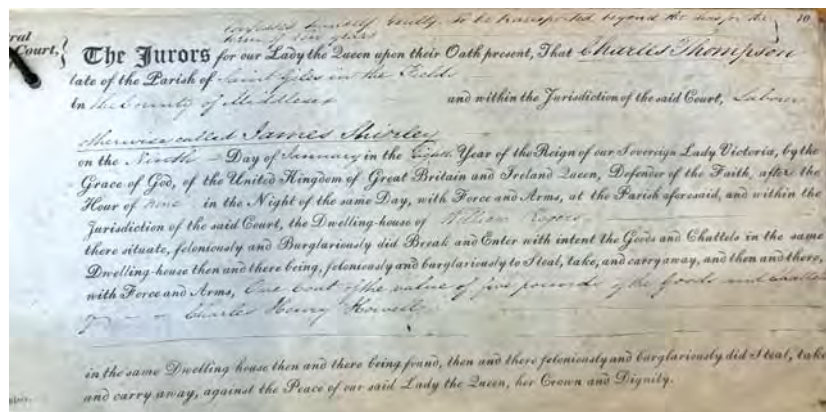 confesses himself Guilty. To be transported beyond the seas for the 10
term of ten years
ral
Court,
The Jurors for our Lady the Queen upon their Oath present, That Charles Thompson
late of the Parish of Saint Giles in the Fields
in the County of Middlesex and within the Jurisdiction of the said Court, Laborer
otherwise called James Shirley
on the Ninth Day of January in the Eighth Year of the Reign of our Sovereign Lady Victoria, by the
Grace of God, of the United Kingdom of Great Britain and Ireland Queen, Defender of the Faith, after the
Hour of nine in the Night of the same Day, with Force and Arms, at the Parish aforesaid, and within the
Jurisdiction of the said Court, the Dwelling-house of William Rogers
there situate, feloniously and Burglariously did Break and Enter with intent the Goods and Chattels in the same
Dwelling-house then and there being, feloniously and burglariously to Steal, take, and carry away, and then and there,
with Force and Arms, One coat of the value of five pounds of the Goods and Chattels
of Charles Henry Howell
in the same Dwelling house then and there being found, then and there feloniously and burglariously did Steal, take
and carry away, against the Peace of our said Lady the Queen, her Crown and Dignity.